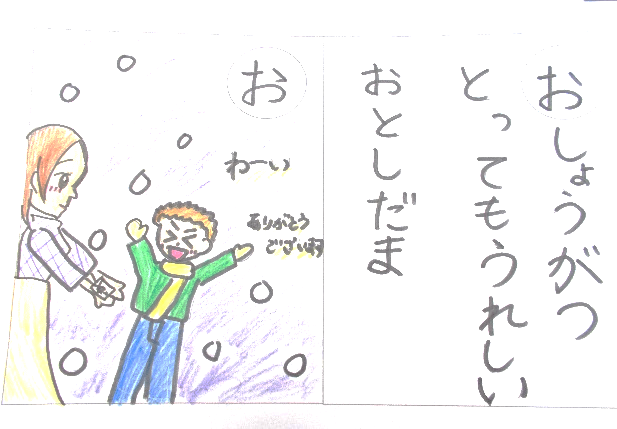 おしょうがつ
とってもうれしい
おとしだま
お
わーい
ありがとう
ございます